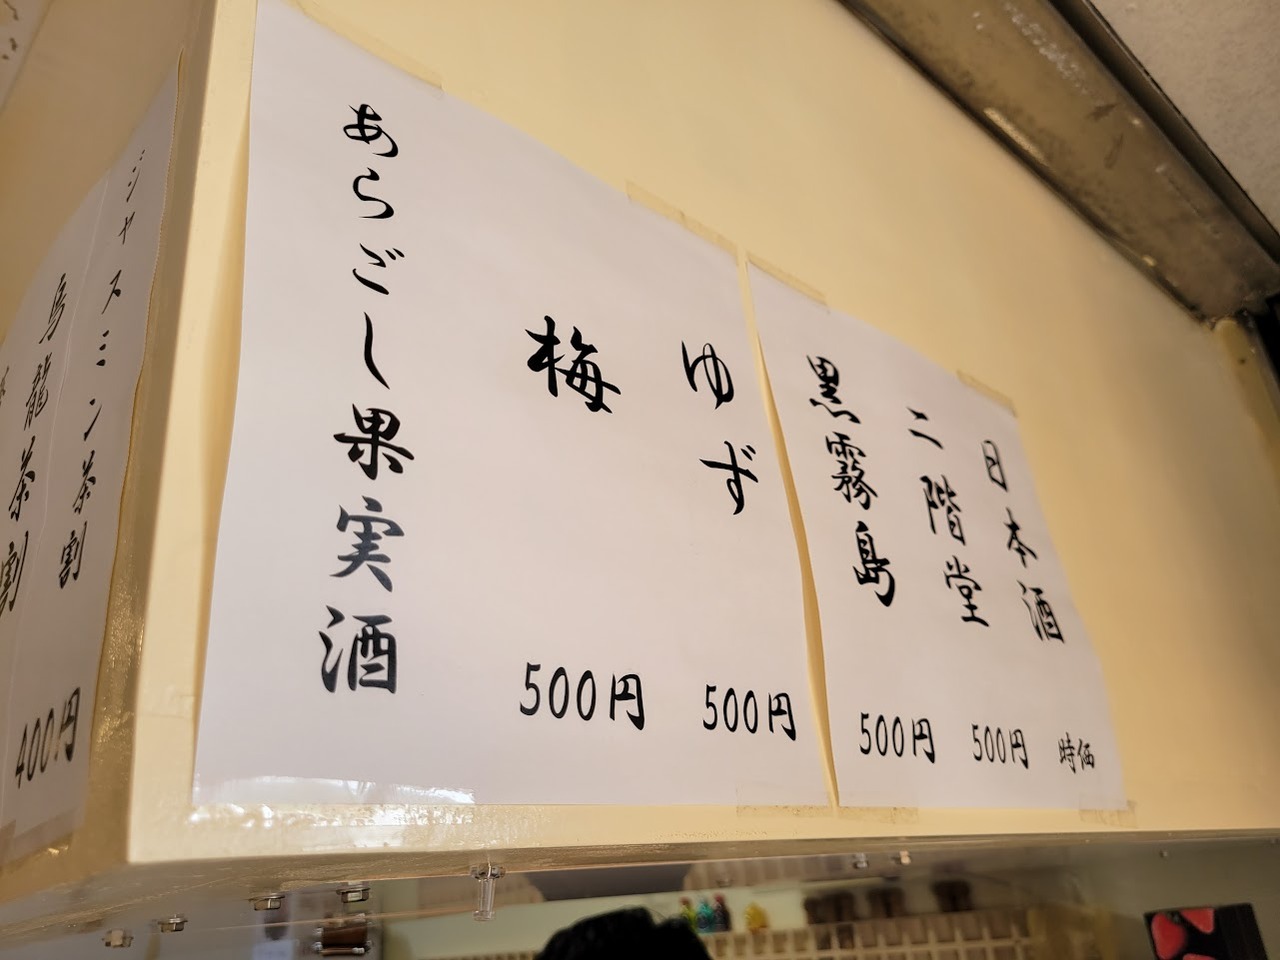 日本酒 時価
二階堂 500円
黒霧島 500円
ゆず 500円
梅 500円
あらごし果実酒
ジャスミン茶割
烏龍茶割 400円